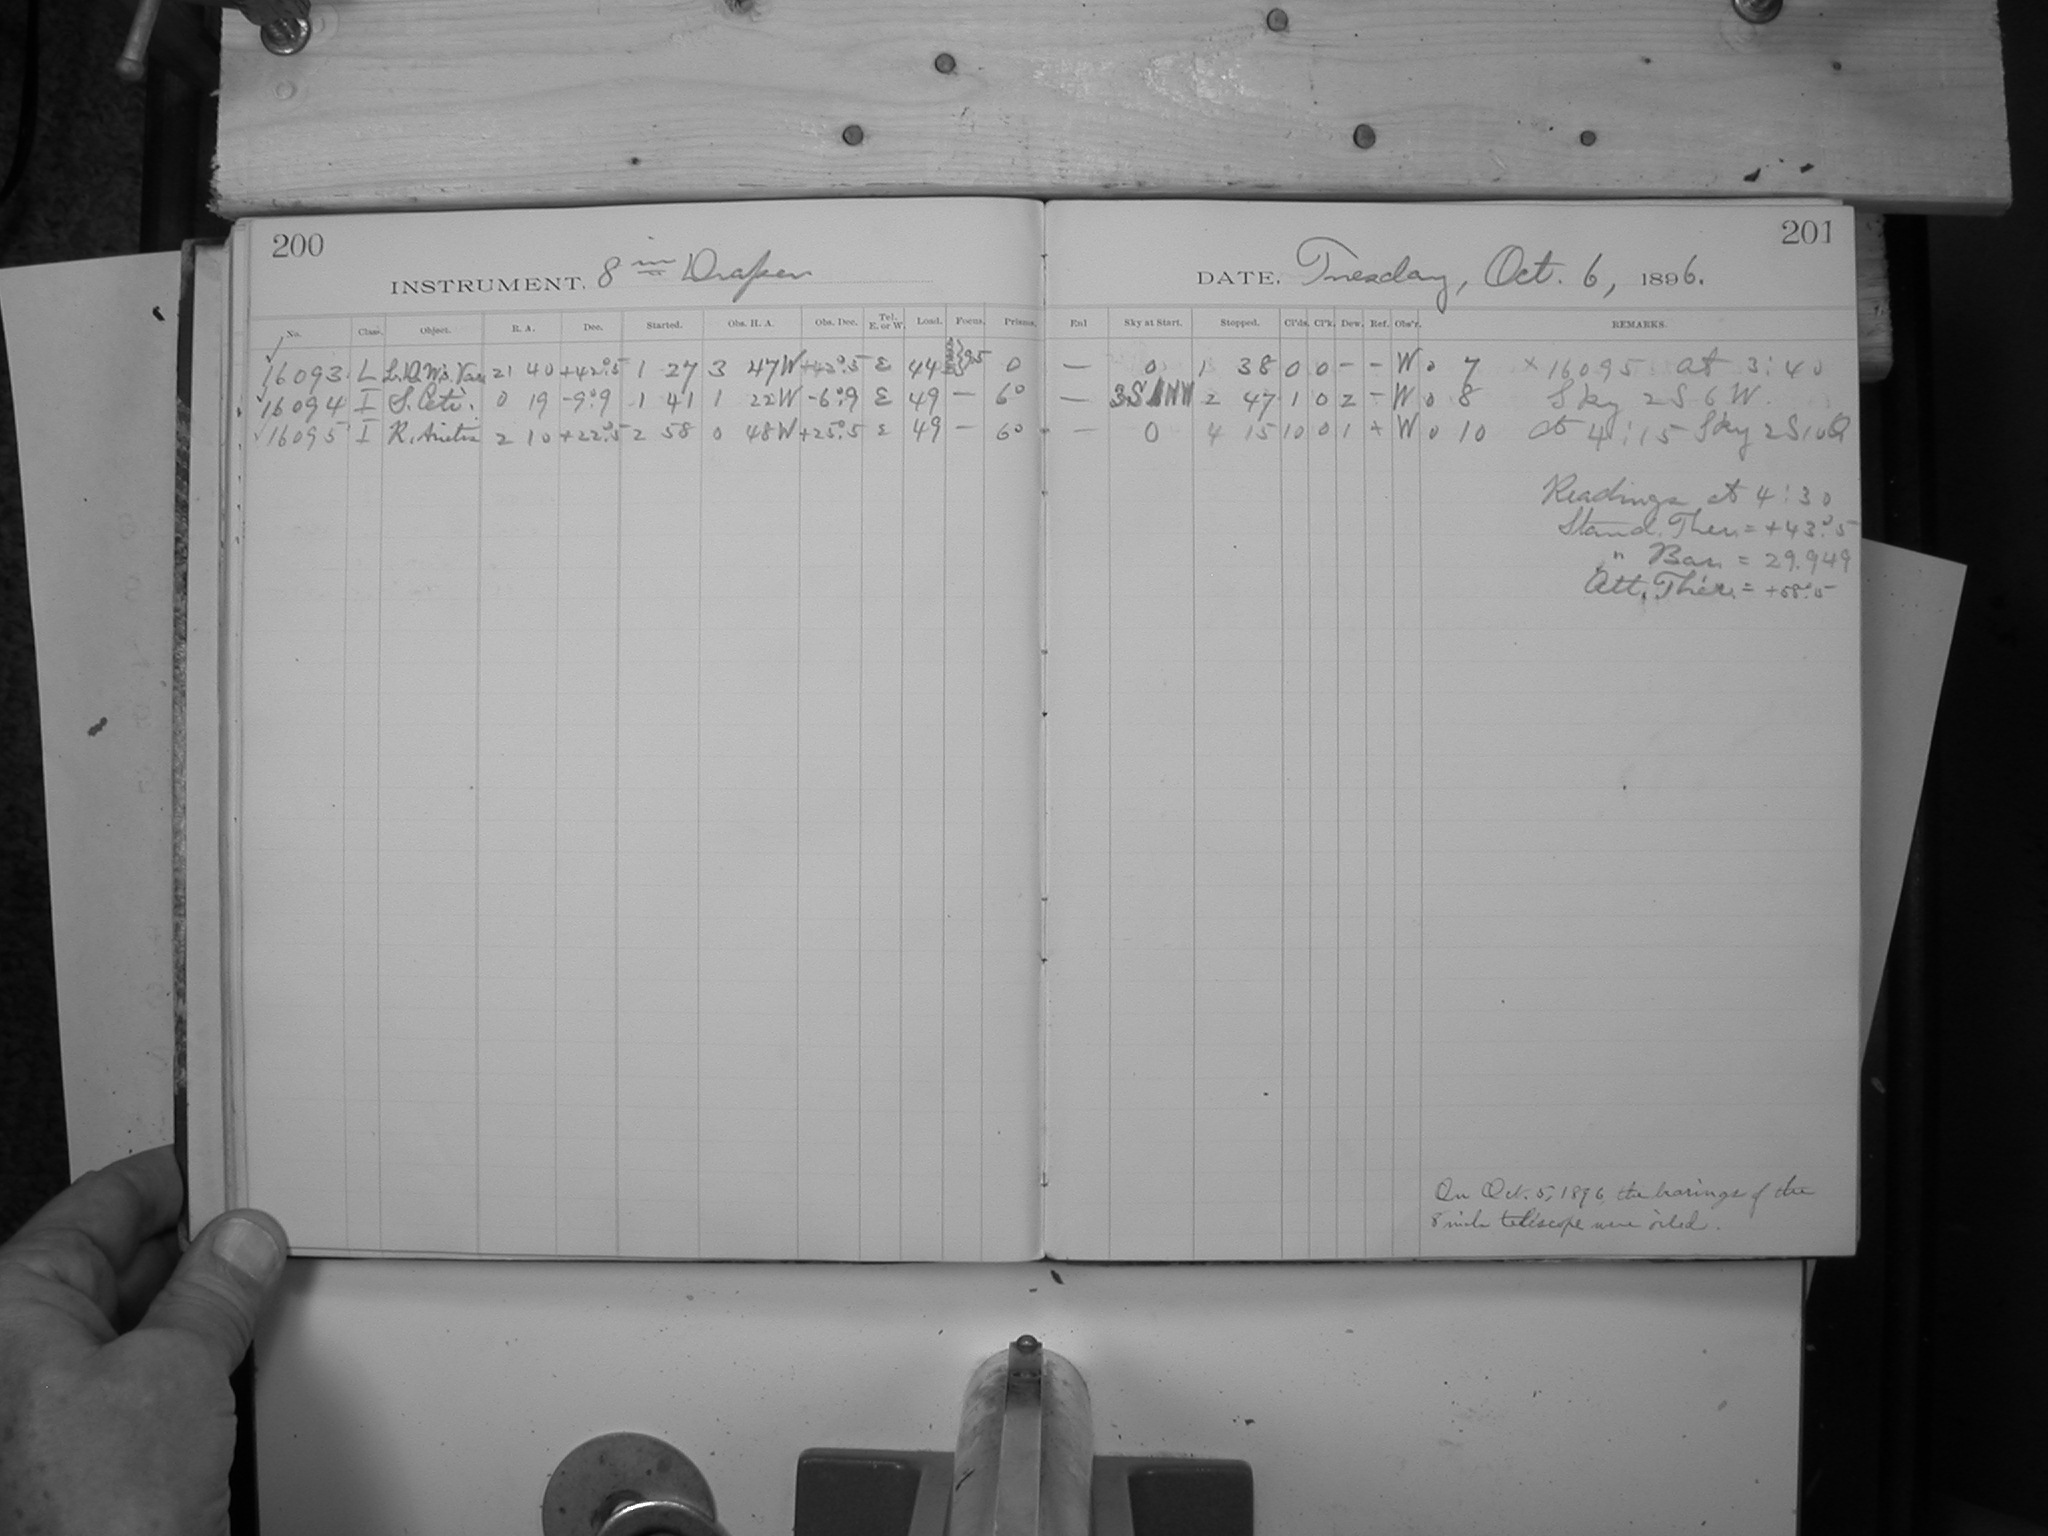 200
INSTRUMENT, 8 in Draper
No. Class. Object. R. A. Dec. Started. Obs. H. A. Obs. Dec. Tel. E. or W. Load. Focus. Prisms.
16093 L 21 40 +42°.5 1 27 3 47W +43°.5 E 44 95 0
16094 I S. Ceti. 0 19 -9°.9 1 41 1 22W -6°.9 E 49 — 6°
16095 I R. Arietis 2 10 +22°.5 2 58 0 48W +25°.5 E 49 — 6°
201
DATE, Tuesday, Oct. 6, 1896.
Enl Sky at Start. Stopped. Cl'ds. Cl'k. Dew. Ref. Obs'r. REMARKS.
— 0 1 38 0 0 - - W 0 7 × 16095 at 3:40
— 3S 2 47 1 0 2 - W 0 8 Sky 2S 6W.
— 0 4 15 10 0 1 × W 0 10 at 4:15 Sky 2S10
Readings at 4:30
Stand. Ther. = +43°.5
" Bar. = 29.949
Att. Ther. = +58°.5
On Oct. 5, 1896, the bearings of the
8 inch telescope were oiled.